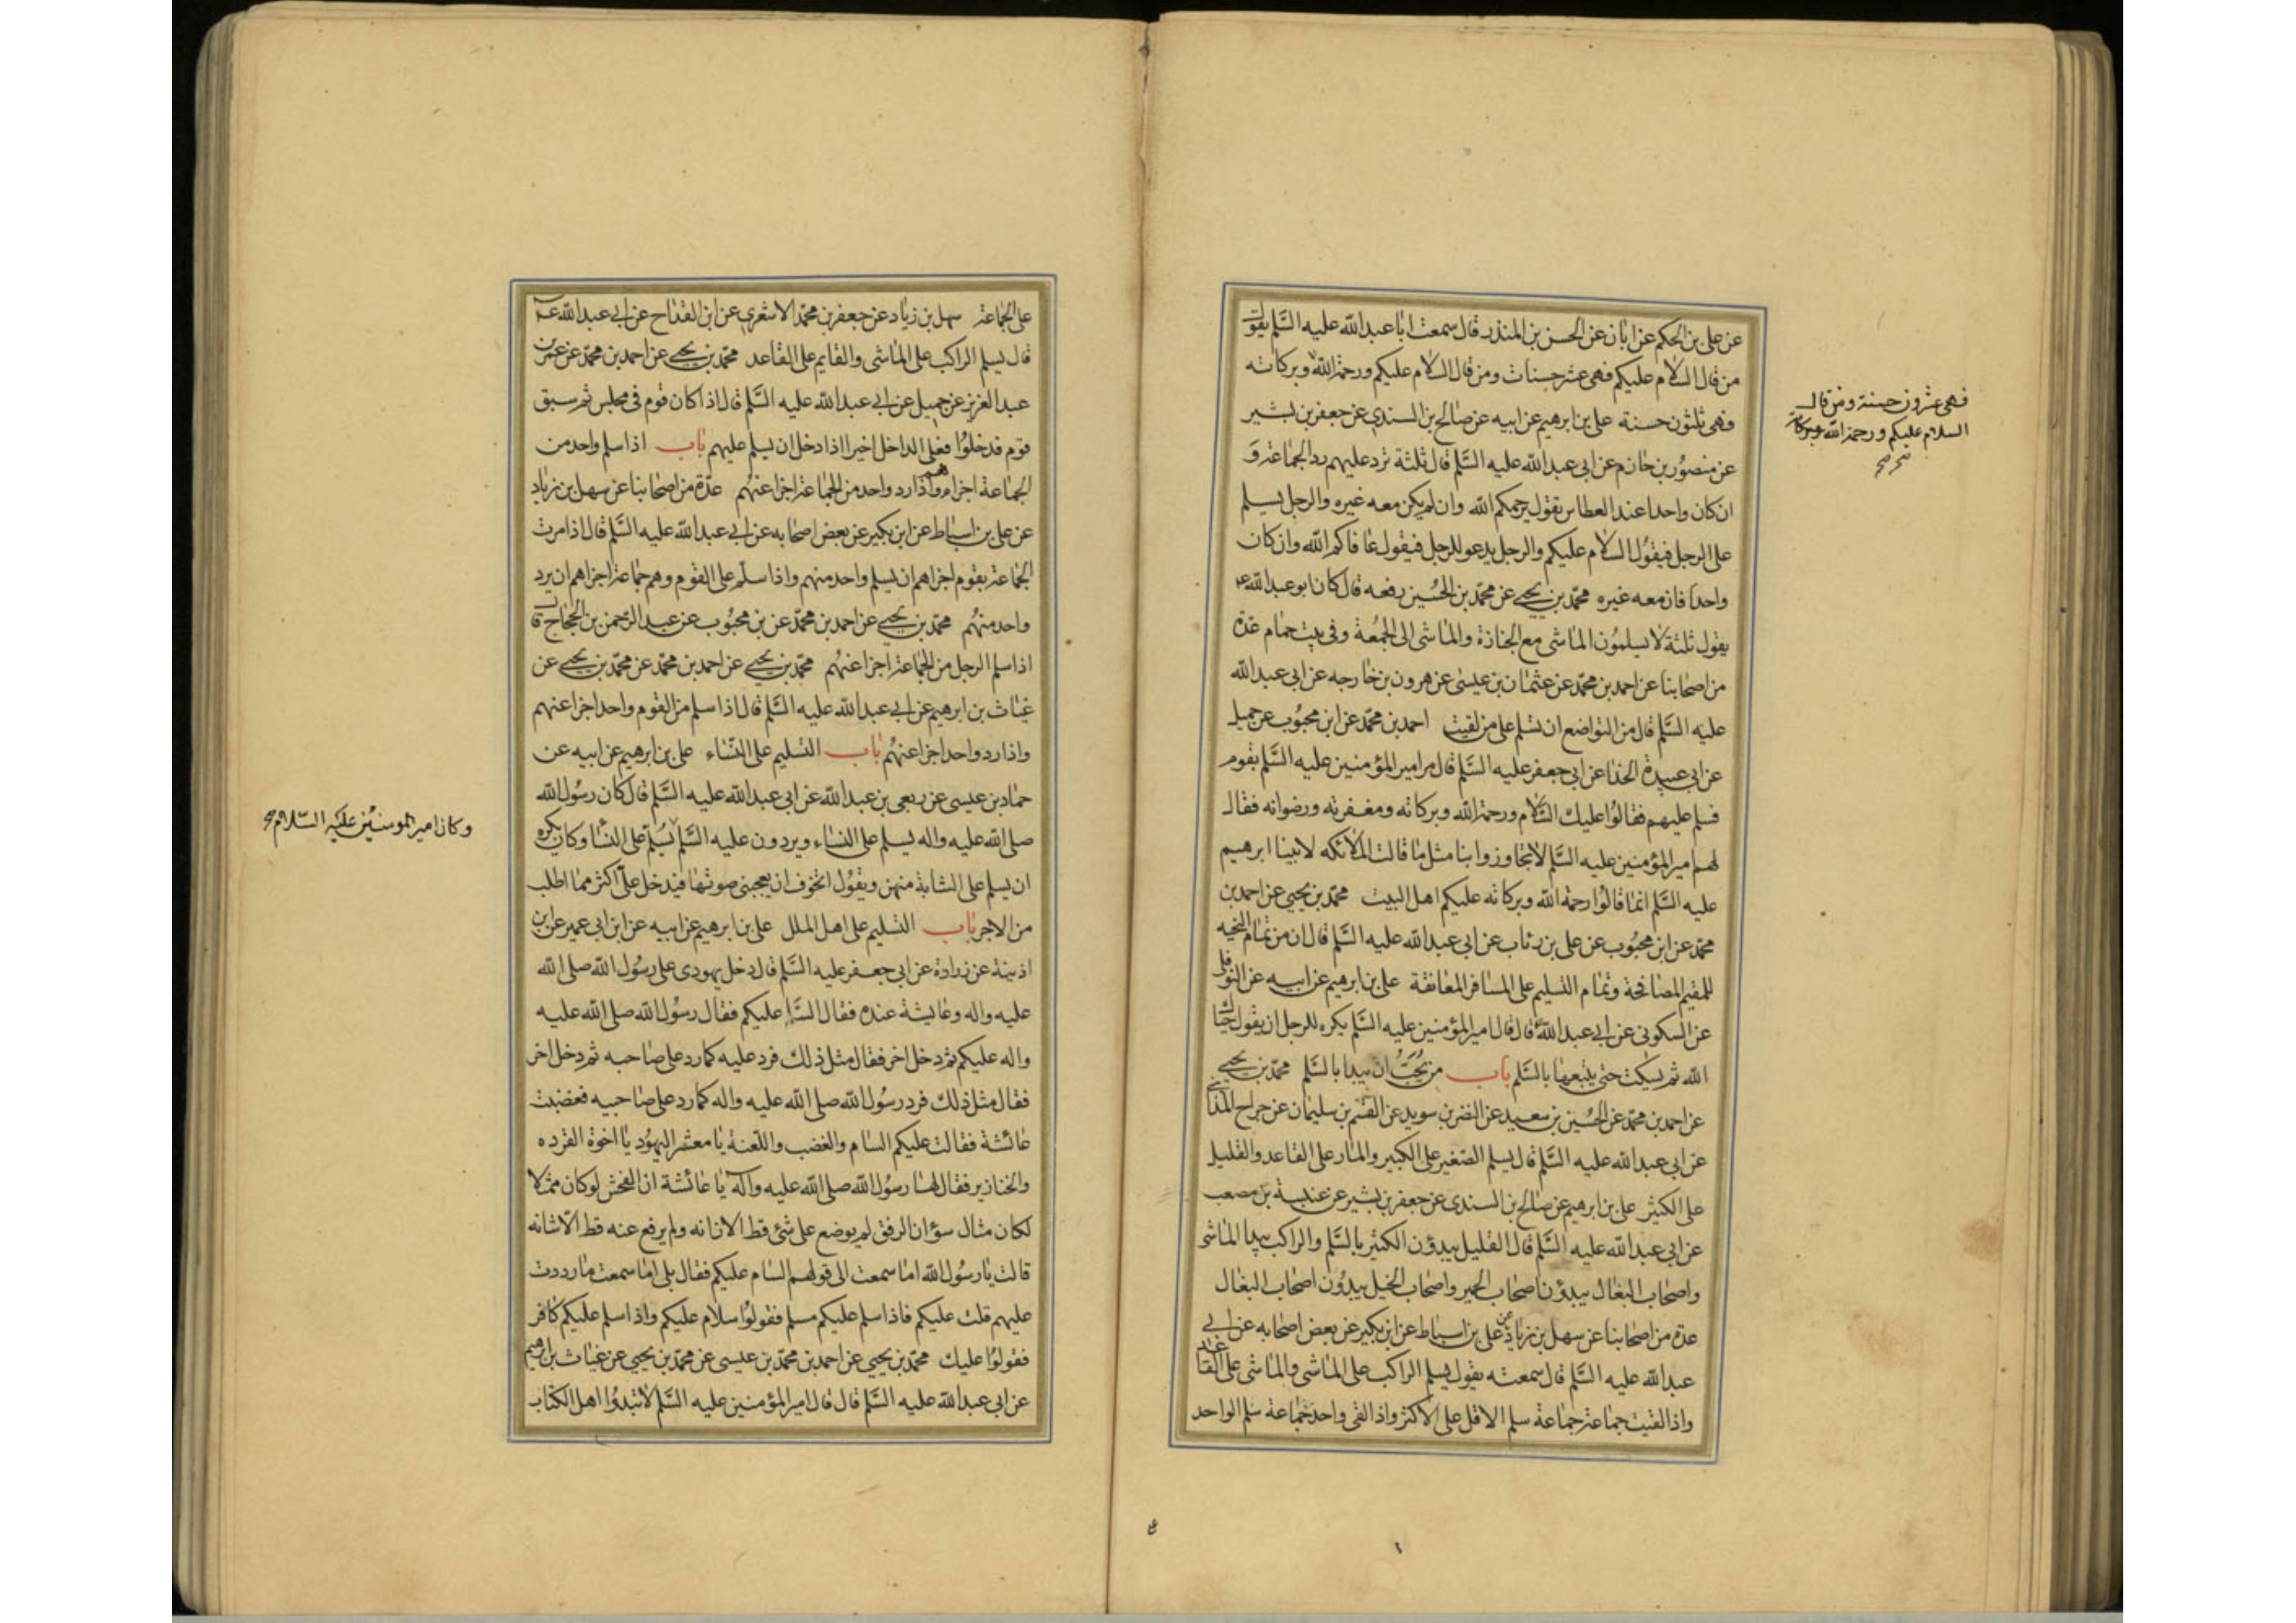 عن على بن الحكم عن ابان عن الحسن بن المنذر قال سمعت ابا عبد الله عليه السَّلم يقول
من قال السلام عليكم فهى عشر حسنات ومن قال السلام عليكم ورحمة الله وبركاته
فهى ثلثون حسنة على بن ابرهيم عن ابيه عن صالح بن السندى عن جعفر بن بشير
عن منصور بن حازم عن ابى عبد الله عليه السَّلم قال ثلثة ترد عليهم رد الجماعة و
ان كان واحدا عند العطاس يقول يرحمكم الله وان لم يكن معه غيره والرجل يسلم
على الرجل فيقول السلام عليكم والرجل يدعو للرجل فيقول عافاكم الله وان كان
واحدا فان معه غيره محمّد بن يحيى عن محمّد بن الحسين رفعه قال كان ابو عبد الله ع
يقول ثلثة لا يسلمون الماشى مع الجنازة والماشى الى الجمعة وفى بيت حمام عدة
من اصحابنا عن احمد بن محمّد عن عثمان بن عيسى عن هرون بن خارجه عن ابى عبد الله
عليه السَّلم قال من التواضع ان تسلم على من لقيت احمد بن محمّد عن ابن محبوب عن جميل
عن ابى عبيدة الحذا عن ابى جعفر عليه السَّلم قال مر امير المؤمنين عليه السَّلم بقوم
فسلم عليهم فقالوا عليك السلام ورحمة الله وبركاته ومغفرته ورضوانه فقال
لهم امير المؤمنين عليه السَّلم لا تجاوزوا بنا مثل ما قالت الملائكه لابينا ابرهيم
عليه السَّلم انما قالوا رحمة الله وبركاته عليكم اهل البيت محمّد بن يحيى عن احمد بن
محمّد عن ابن محبوب عن على بن رئاب عن ابى عبد الله عليه السَّلم قال ان من تمام التحيه
للمقيم المصافحة وتمام التسليم على المسافر المعانقة على بن ابرهيم عن ابيه عن النوفلى
عن السكونى عن ابى عبد الله ع قال قال امير المؤمنين عليه السَّلم يكره للرجل ان يقول حياك
الله ثم يسكت حتى يتبعها بالسَّلم باب من يجب ان يبدا بالسَّلم محمّد بن يحيى
عن احمد بن محمّد عن الحسين بن سعيد عن النضر بن سويد عن القسم بن سليمان عن جراح المداينى
عن ابى عبد الله عليه السَّلم قال يسلم الصغير على الكبير والمار على القاعد والقليل
على الكثير على بن ابرهيم عن صالح بن السندى عن جعفر بن بشير عن عنبسة بن مصعب
عن ابى عبد الله عليه السَّلم قال القليل يبدؤن الكثير بالسَّلم والراكب يبدا الماشى
واصحاب البغال يبدؤن اصحاب الحمير واصحاب الخيل يبدؤن اصحاب البغال
عدة من اصحابنا عن سهل بن زياد عن على بن اسباط عن ابن بكير عن بعض اصحابه عن ابى
عبد الله عليه السَّلم قال سمعته يقول يسلم الراكب على الماشى والماشى على القاعد
واذا لقيت جماعة جماعة سلم الاقل على الاكثر واذا لقى واحد جماعة سلم الواحد
فهى عشرون حسنة ومن قال
السلام عليكم ورحمة الله وبركاته
صح صح
على الجماعة سهل بن زياد عن جعفر بن محمّد الاشعرى عن ابن القداح عن ابى عبد الله ع
قال يسلم الراكب على الماشى والقايم على القاعد محمّد بن يحيى عن احمد بن محمّد عن عمر بن
عبد العزيز عن جميل عن ابى عبد الله عليه السَّلم قال اذا كان قوم فى مجلس ثم سبق
قوم فدخلوا فعلى الداخل اخيرا اذا دخل ان يسلم عليهم باب اذا سلم واحد من
الجماعة اجزاهم واذا رد واحد من الجماعة اجزا عنهم عدّة من اصحابنا عن سهل بن زياد
عن على بن اسباط عن ابن بكير عن بعض اصحابه عن ابى عبد الله عليه السَّلم قال اذا مرت
الجماعة بقوم اجزاهم ان يسلم واحد منهم واذا سلّم على القوم وهم جماعة اجزاهم ان يرد
واحد منهم محمّد بن يحيى عن احمد بن محمّد عن بن محبوب عن عبد الرحمن بن الحجاج قال
اذا سلم الرجل من الجماعة اجزا عنهم محمّد بن يحيى عن احمد بن محمّد عن محمّد بن يحيى عن
غياث بن ابرهيم عن ابى عبد الله عليه السَّلم قال اذا سلم من القوم واحد اجزا عنهم
واذا رد واحد اجزا عنهم باب التسليم على النّساء على بن ابرهيم عن ابيه عن
حماد بن عيسى عن ربعى بن عبد الله عن ابى عبد الله عليه السَّلم قال كان رسول الله
صلى الله عليه واله يسلم على النساء ويردون عليه السَّلم يسلم على النسا وكان يكره
ان يسلم على الشابة منهن ويقول اتخوف ان يعجبنى صوتها فيدخل علىّ اكثر مما اطلب
من الاجر باب التسليم على اهل الملل على بن ابرهيم عن ابيه عن ابن ابى عمير عن ابن
اذينة عن زرارة عن ابى جعفر عليه السَّلم قال دخل يهودى على رسول الله صلى الله
عليه واله وعايشة عنده فقال السام عليكم فقال رسول الله صلى الله عليه
واله عليكم ثم دخل اخر فقال مثل ذلك فرد عليه كما رد على صاحبه ثم دخل اخر
فقال مثل ذلك فرد رسول الله صلى الله عليه واله كما رد على صاحبيه فغضبت
عائشة فقالت عليكم السام والغضب واللعنة يا معشر اليهود يا اخوة القرده
والخنازير فقال لها رسول الله صلى الله عليه وآله يا عائشة ان الفحش لو كان ممثلا
لكان مثال سؤ ان الرفق لم يوضع على شئ قط الا زانه ولم يرفع عنه قط الّا شانه
قالت يا رسول الله اما سمعت الى قولهم السام عليكم فقال بلى اما سمعت ما رددت
عليهم قلت عليكم فاذا سلم عليكم مسلم فقولوا سلام عليكم واذا سلم عليكم كافر
فقولوا عليك محمّد بن يحيى عن احمد بن محمّد بن عيسى عن محمّد بن يحيى عن غياث بن ابرهيم
عن ابى عبد الله عليه السَّلم قال قال امير المؤمنين عليه السَّلم لا تبدؤا اهل الكتاب
وكان امير المومنين عليه السّلام